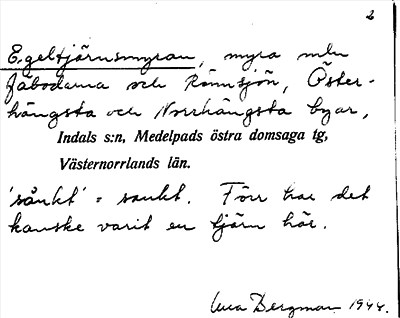 2
Egeltjärnsmyran, myra mln
Fäbodarna och Rännsjön, Öster-
hängsta och Norrhängsta byar,
Indals s:n, Medelpads östra domsaga tg,
Västernorrlands län.
'sånkt' = sankt. Förr har det
kanske varit en tjärn här.
Bergman 1944.